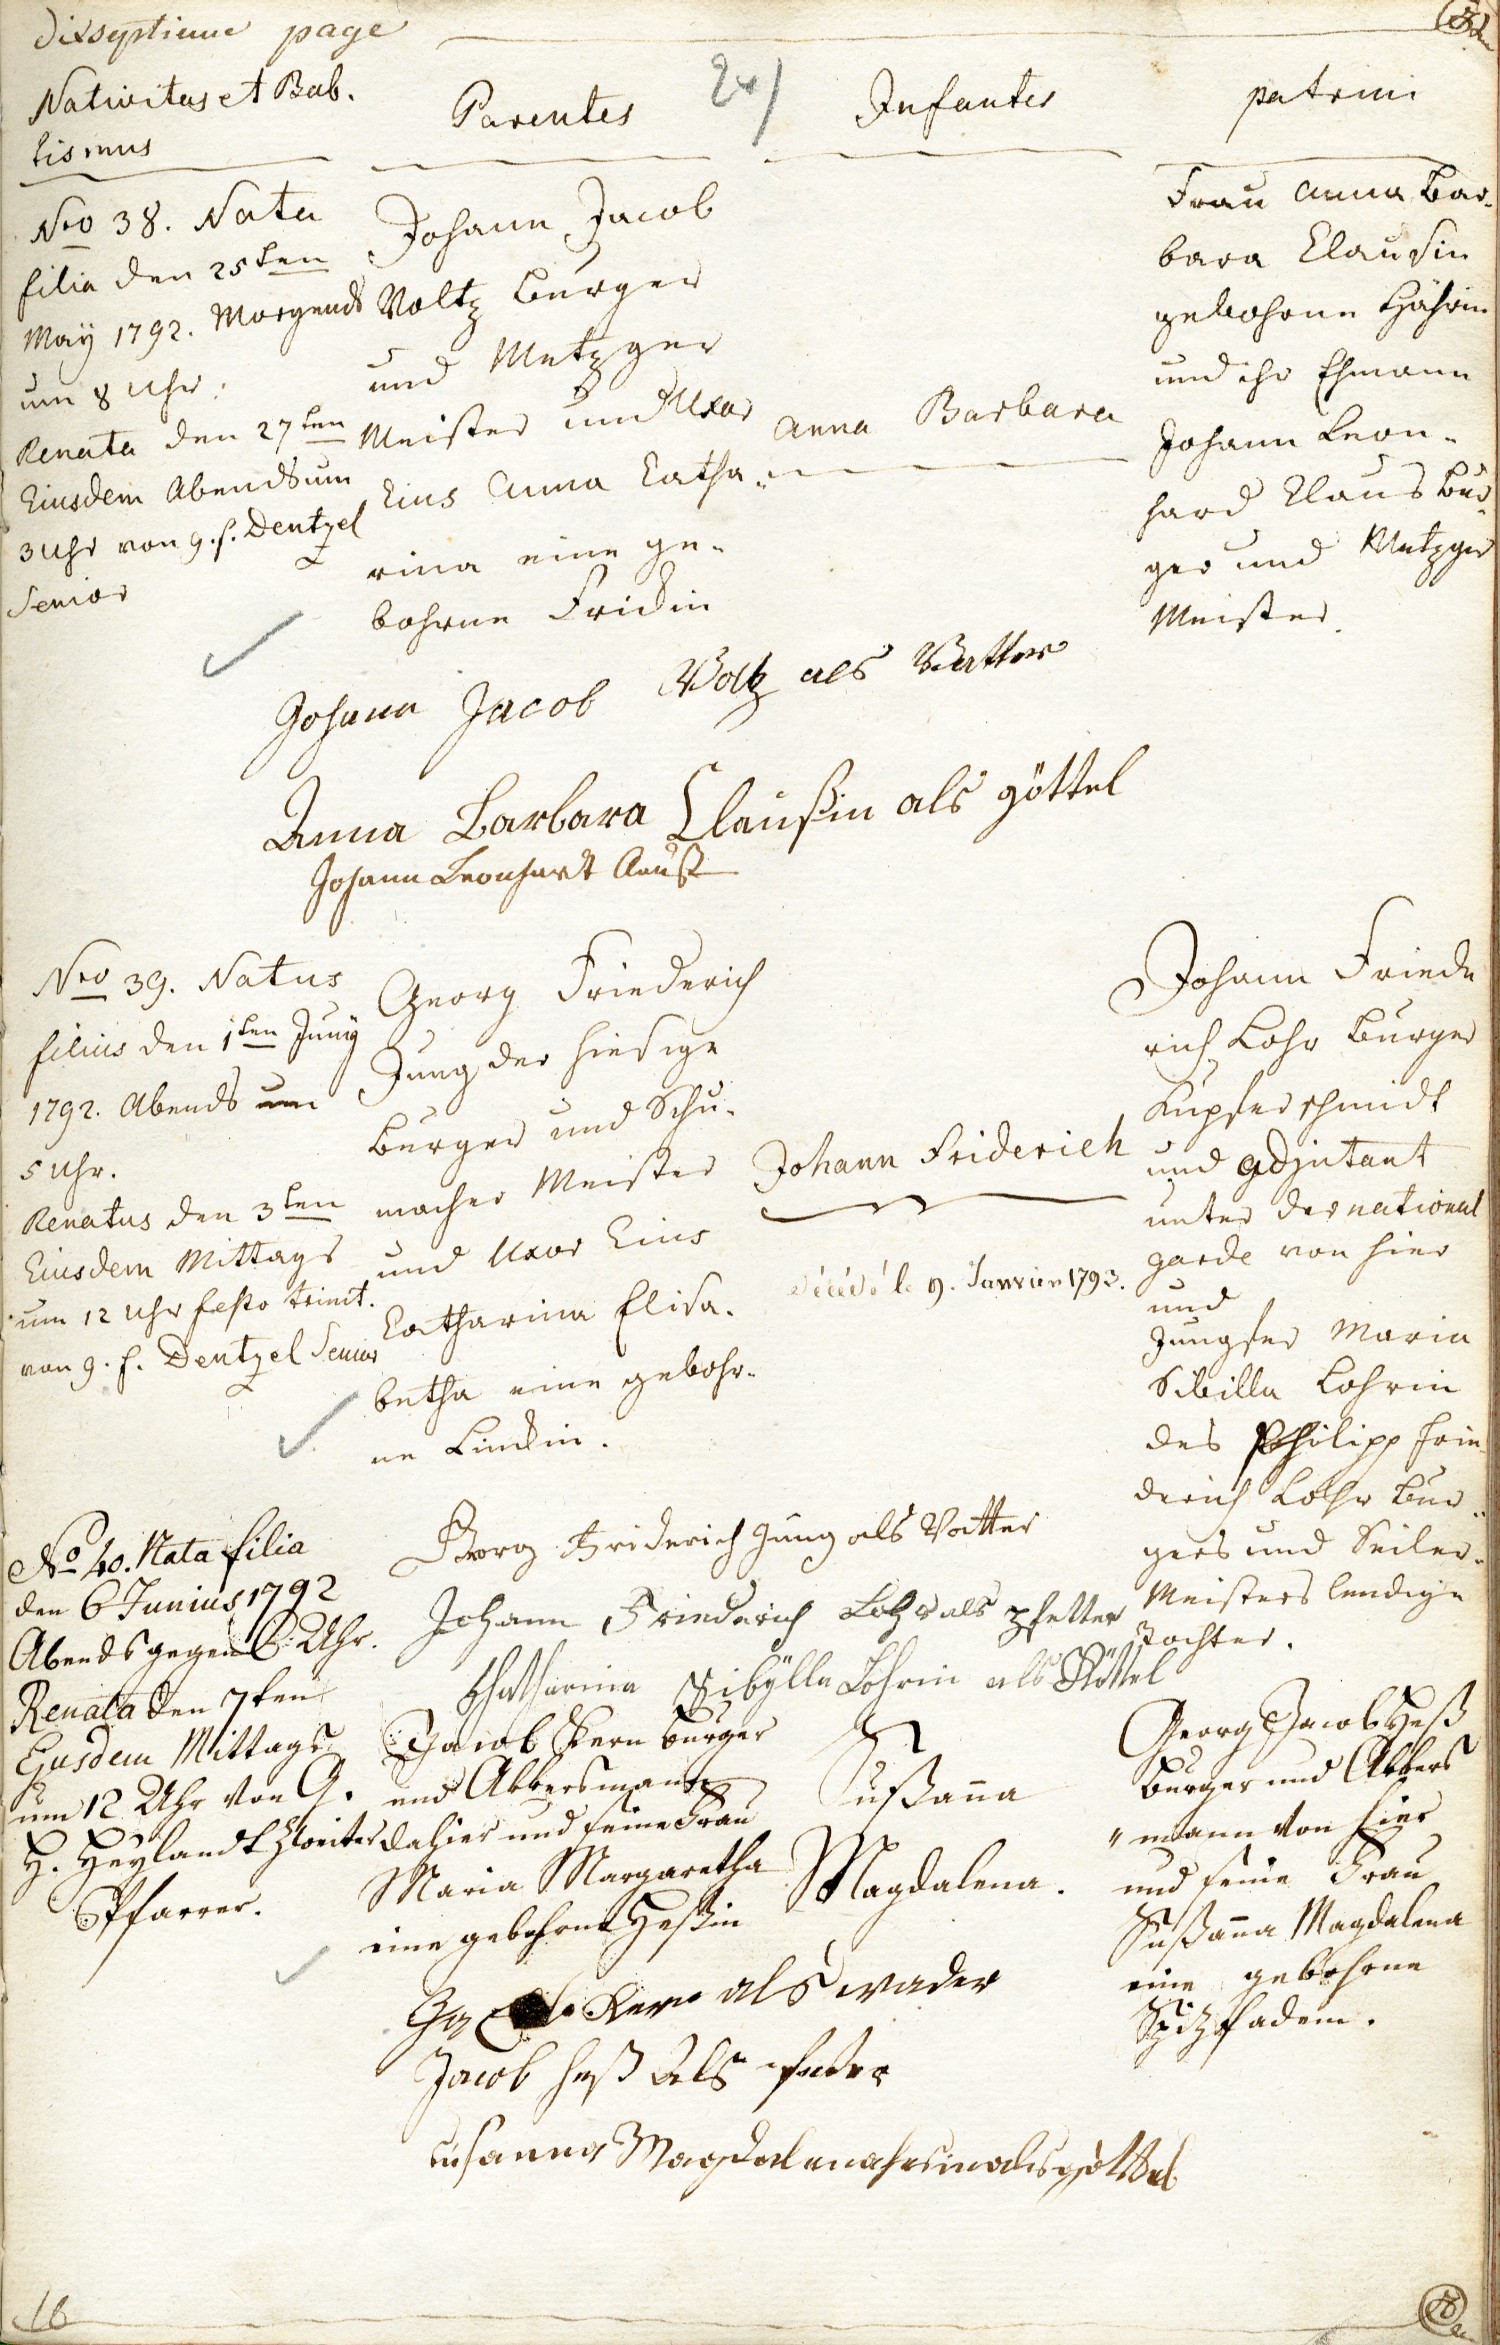 dixseptieme page
Nativitas et Bab.
tismus
Parentes
24)
Infantes
patrini
Nro 38. Nata
filia den 25ten
May 1792. Morgends
um 8 Uhr:
Renata den 27ten
Eiusdem Abends um
3 Uhr von g. h. Dentzel
Senior
Johann Jacob
Voltz burger
und Metzger
Meister und Uxor
Eius Anna Catha-
rina eine ge-
bohrne Fridin
Anna Barbara
Frau Anna Bar-
bara Clausin
gebohrne
und ihr Ehmann
Johann Leon-
hard Claus bur-
ger und Metzger
Meister.
Johann Jacob Voltz als Vatter
Anna Barbara Claußin als göttel
Johann Leonhart Clauß
Nro 39. Natus
filius den 1ten Juny
1792. Abends um
5 Uhr.
Renatus den 3ten
Eiusdem Mittags
um 12 Uhr festo trinit.
von g. h. Dentzel Senior
Georg Friederich
Jung der hiesige
burger und Schu-
macher Meister
und Uxor Eius
Catharina Elisa-
betha eine gebohr-
ne Lindin.
Johann Friderich
décédé le 9. Janvier 1793.
Johann Friede
rich Lohr burger
Kupferschmidt
und Adjutant
unter der national
garde von hier
und
Jungfer Maria
Sibilla Lohrin
des Philipp Frie
derich Lohr bur-
gers und Seiler-
Meisters lendige
Tochter.
Georg Friderich Jung als Vatter
Johann Friederich Lohr als pfetter
Chatharina Sibÿlla Lohrin als Göttel
No 40. Nata filia
den 6 Junius 1792
Abends gegen 6 Uhr.
Renata den 7ten
Ejusdem Mittags
um 12 Uhr von G.
H. Heylandt zweiter
Pfarrer.
Jacob Kern burger
und Akkersmann
dahier und seine Frau
Maria Margaretha
eine gebohrne Heßin
Sußana
Magdalena.
Georg Jacob Heß
burger und Akkers
"mann von hier
und seine Frau
Sußana Magdalena
eine gebohrne
Spizfadem.
Kern als vader
Jacob heß als pfeter
susanna Magdalena hesin als göttel
16